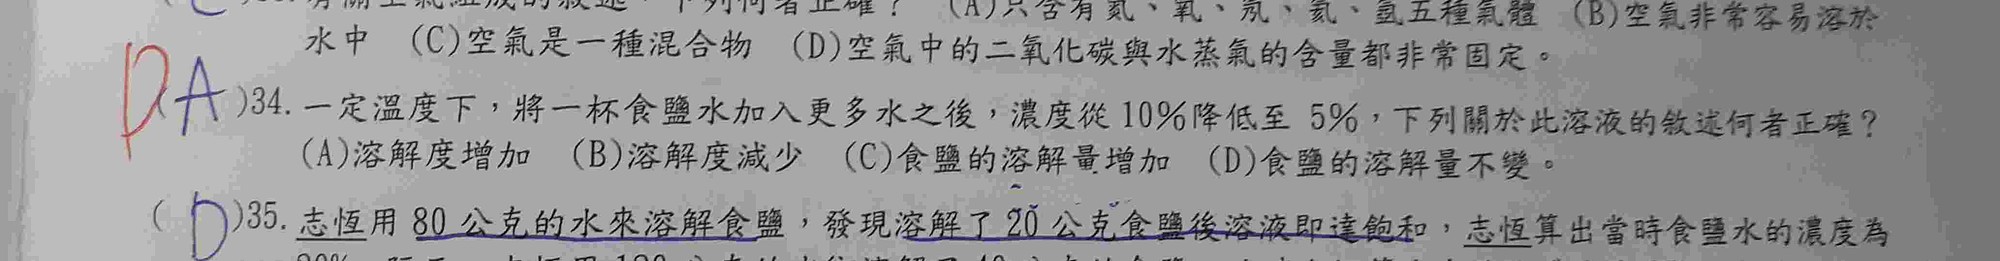 下列何者正確？ (A)只含有氮、氧、氖、氦、氬五種氣體 (B)空氣非常容易溶於
水中 (C)空氣是一種混合物 (D)空氣中的二氧化碳與水蒸氣的含量都非常固定。
D A )34. 一定溫度下，將一杯食鹽水加入更多水之後，濃度從 10%降低至 5%，下列關於此溶液的敘述何者正確？
(A)溶解度增加 (B)溶解度減少 (C)食鹽的溶解量增加 (D)食鹽的溶解量不變。
( D )35. 志恆用 80 公克的水來溶解食鹽，發現溶解了 20 公克食鹽後溶液即達飽和，志恆算出當時食鹽水的濃度為